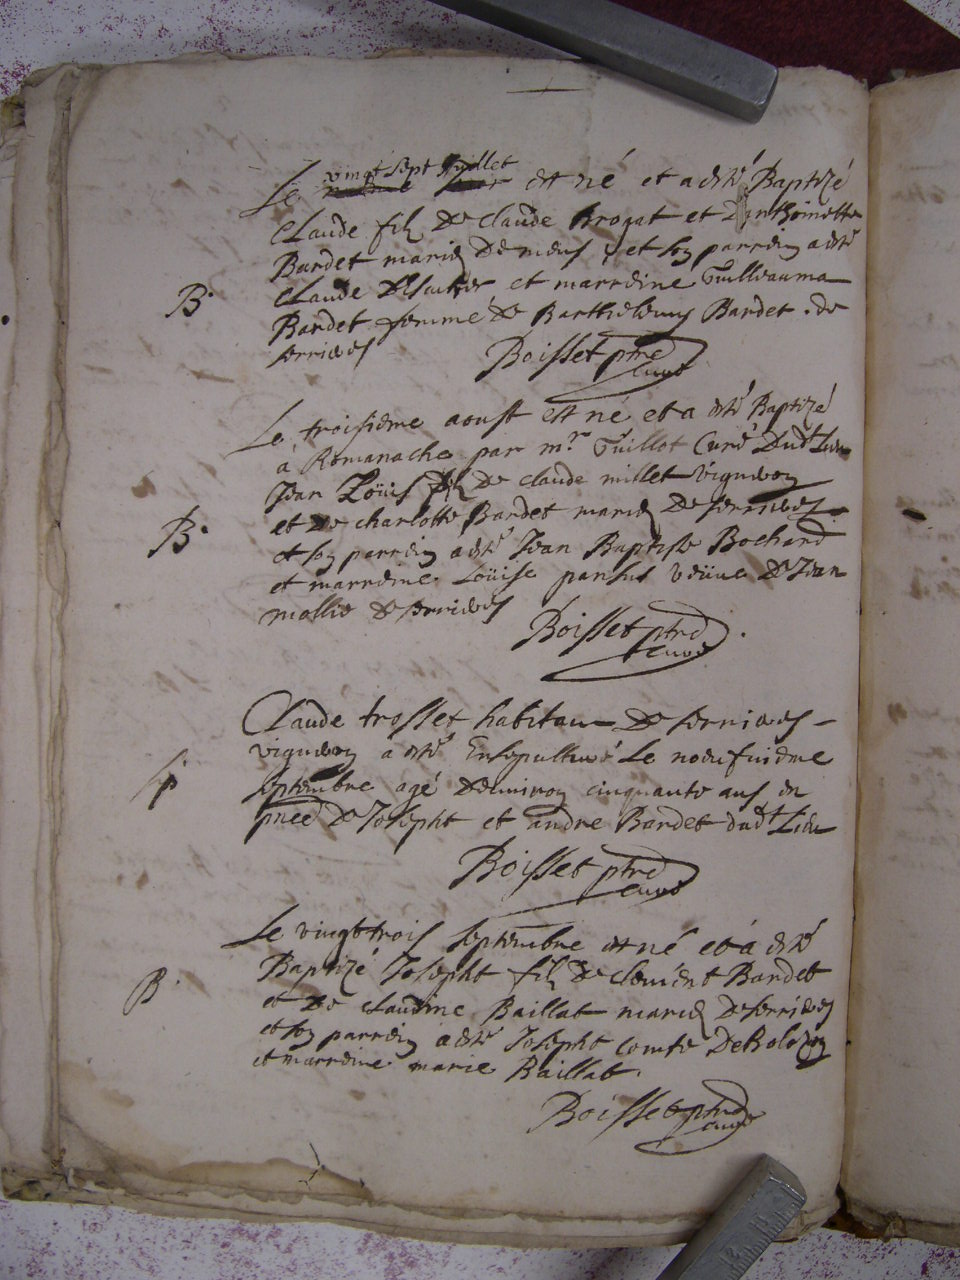 vingt sept Juillet
Le est né et a esté Baptizé
Claude filz de Claude Brogat et D'Anthoinette
Bardet mariez de meus et son parrein a esté
Claude et marreine Guilleauma
B.
Bardet femme de Barthelemy Bardet de
serrieres
Boisset ptre
curé
Le troisieme aoust est né et a esté Baptizé
à Romanache par mr. Guillot Curé Dudt Lieu
Jean Loüis filz de Claude millet Vigneron
et de Charlotte Bardet mariez de serrieres
B.
et son parrein a esté Jean Baptiste Bochard
et marreine Loüise pansut veüve de Jean
mollie de serrieres
Boisset ptre
curé
Claude trosset habitau de serrieres
vigneron a esté Ensepulturé Le neufuieme
S
septembre agé denuiron cinquante ans en
pnce de Josepht et andre Bardet dudt Lieu
Boisset ptre
curé
Le vingttrois septembre est né et à esté
Baptizé Josepht filz de Clement Bardet
B.
et de Claudine Baillat mariez de serrieres
et son parrein a esté Josepht Comte De Bolozon
et marreine marie Baillat.
Boisset ptre
curé